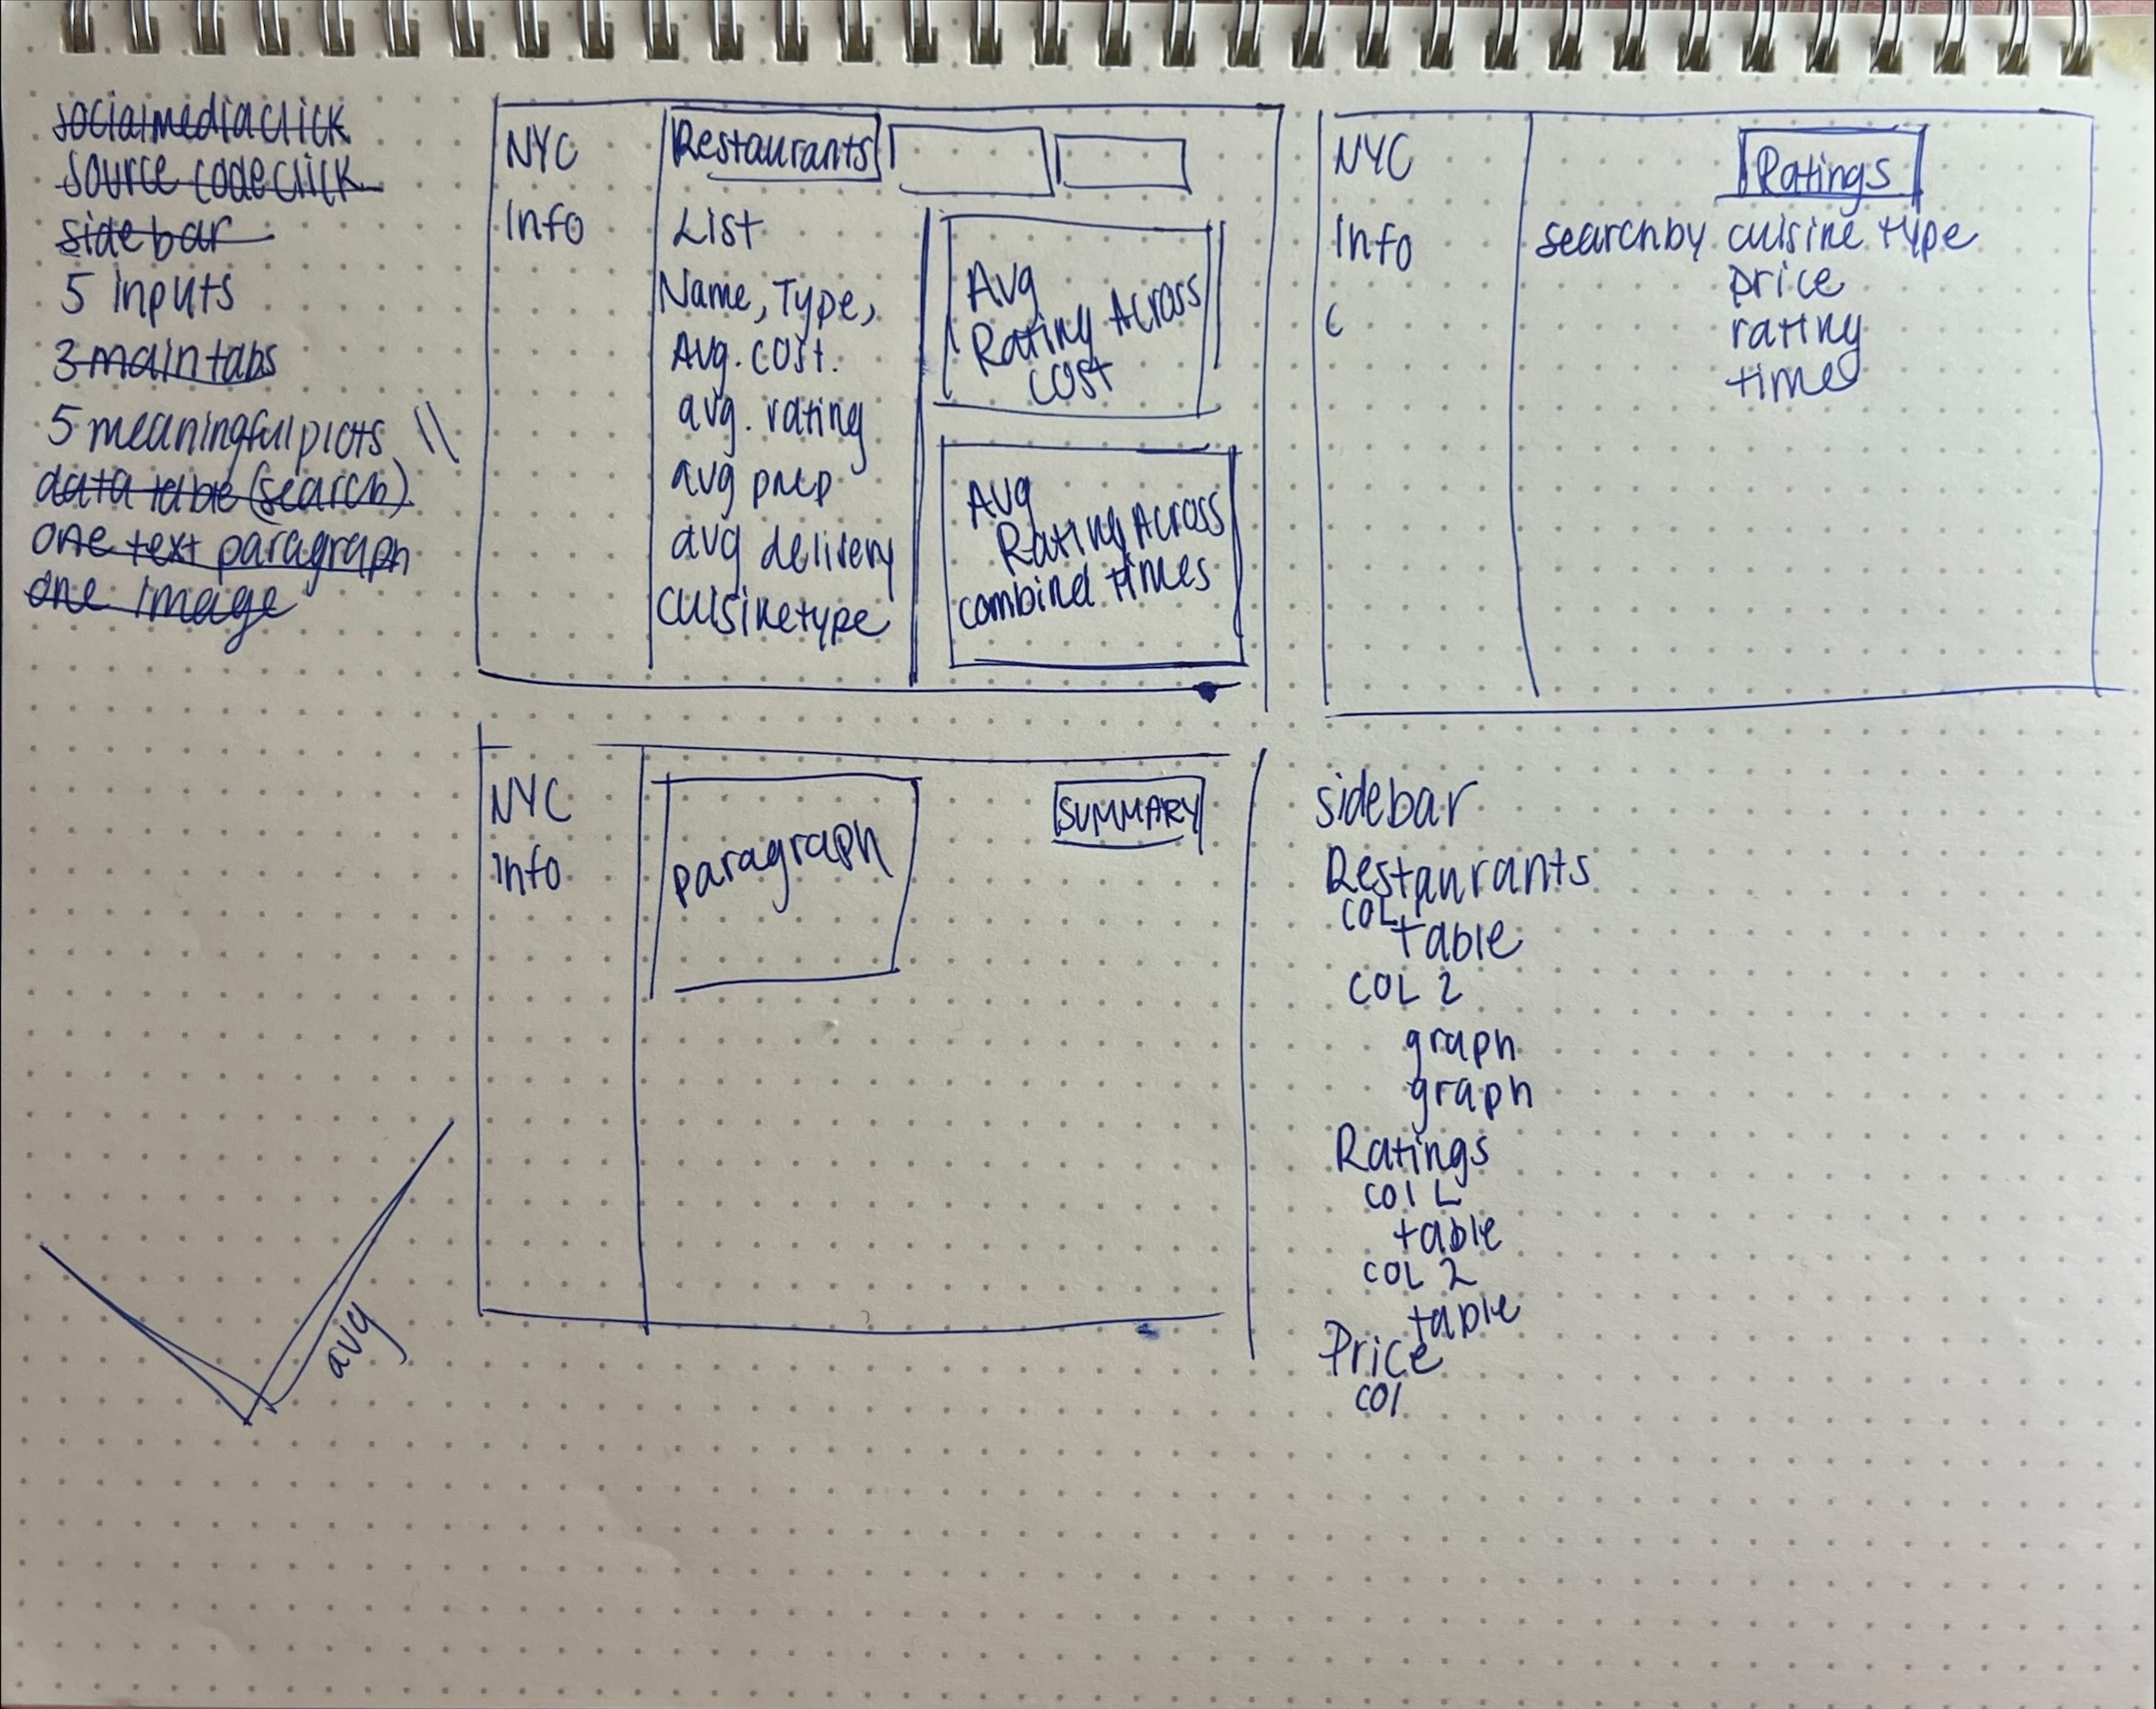 socialmediaclick
source codeclick
sidebar
5 inputs
3 main tabs
5 meaningful plots \\
data table (search)
one text paragraph
one image
NYC
Info
Restaurants
List
Name, Type,
Avg. cost.
avg. rating
avg prep
avg delivery
cuisine type
Avg
Rating Across
cost
Avg
Rating Across
combined times
NYC
Info
(
Ratings
search by cuisine type
price
rating
time
NYC
info
paragraph
SUMMARY
sidebar
Restaurants
COL
table
COL 2
graph
graph
Ratings
COL L
table
COL 2
table
Price
COl
avg